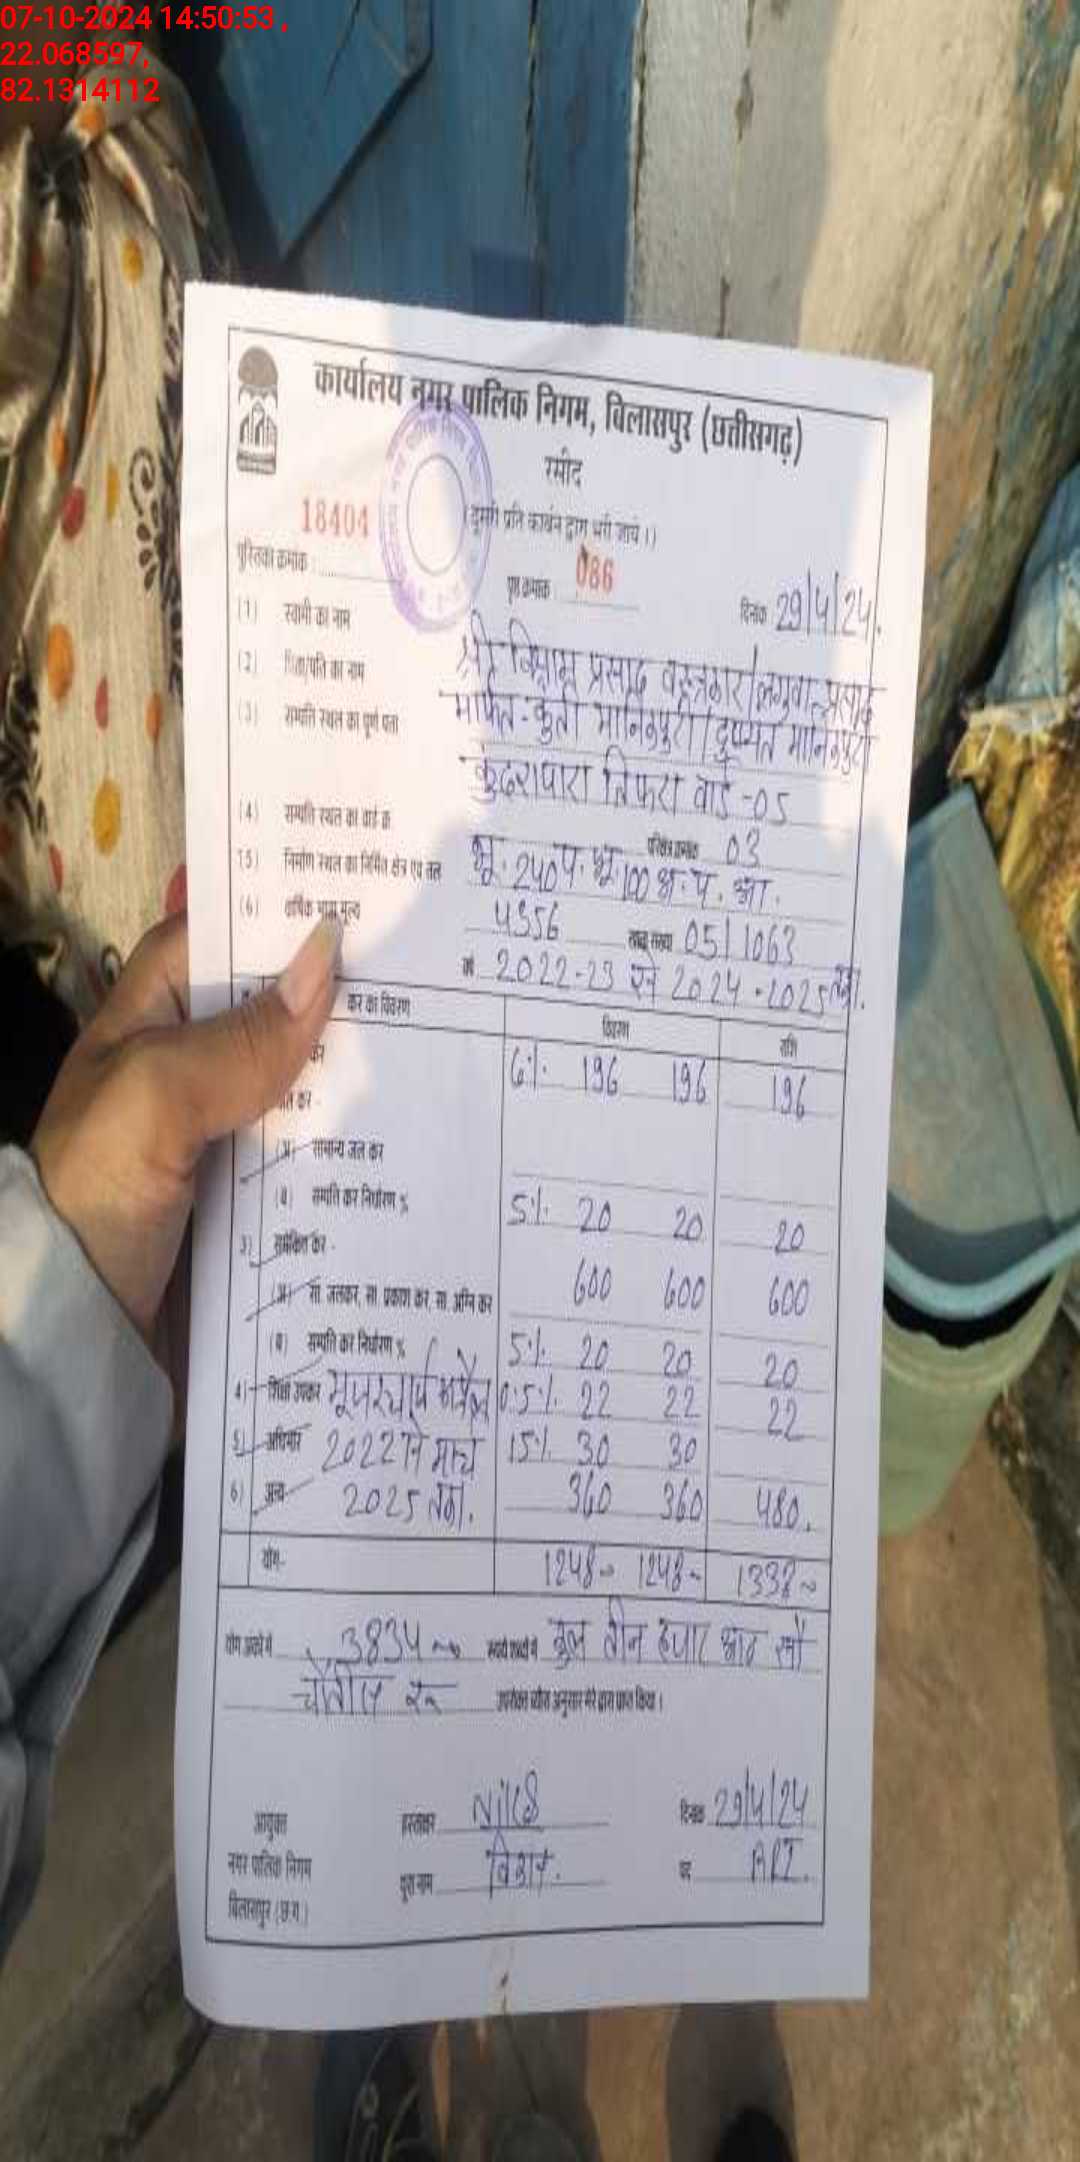 07-10-2024 14:50:53 ,
22.068597,
82.1314112
कार्यालय नगर पालिक निगम, बिलासपुर (छत्तीसगढ़)
रसीद
(दूसरी प्रति कार्बन द्वारा भरी जाये।)
18404
पुस्तिका क्रमांक : पृष्ठ क्रमांक 086 दिनांक 29/4/24.
(1) स्वामी का नाम
श्री विश्राम प्रसाद वस्त्रकार / प्रसाद
(2) पिता/पति का नाम
मानिकपुरी / दुष्यंत मानिकपुरी
(3) सम्पत्ति स्थल का पूर्ण पता
कुदरापारा तिफरा वार्ड -05
(4) सम्पत्ति स्थल का वार्ड क्र परिक्षेत्र क्रमांक 03
(5) निर्माण स्थल का निर्मित क्षेत्र एवं तल
भू. 240 प. भू 100 प. आ.
(6) वार्षिक भाड़ा मूल्य 4356 खाता संख्या 05/1063
वर्ष 2022-23 से 2024-2025 तक.
कर का विवरण विवरण राशि
कर 6%. 196 196 196
जल कर -
(अ) सामान्य जल कर
(ब) सम्पत्ति कर निर्धारण % 5%. 20 20 20
3) समेकित कर -
(अ) सा. जलकर, सा. प्रकाश कर, सा. अग्नि कर 600 600 600
(ब) सम्पत्ति कर निर्धारण % 5%. 20 20 20
4) शिक्षा उपकर यूजरचार्ज अप्रैल 0.5%. 22 22 22
5) अधिभार 2022 से मार्च 15%. 30 30
6) अन्य 2025 तक. 360 360 480.
योग- 1248 1248 1338
योग अंकों में 3834 रूपये शब्दों में कुल तीन हजार आठ सौ
चौंतीस रू उपरोक्त ब्यौरा अनुसार मेरे द्वारा प्राप्त किया।
आयुक्त हस्ताक्षर दिनांक 29/4/24
नगर पालिक निगम पूरा नाम पद ARI.
बिलासपुर (छ.ग.)